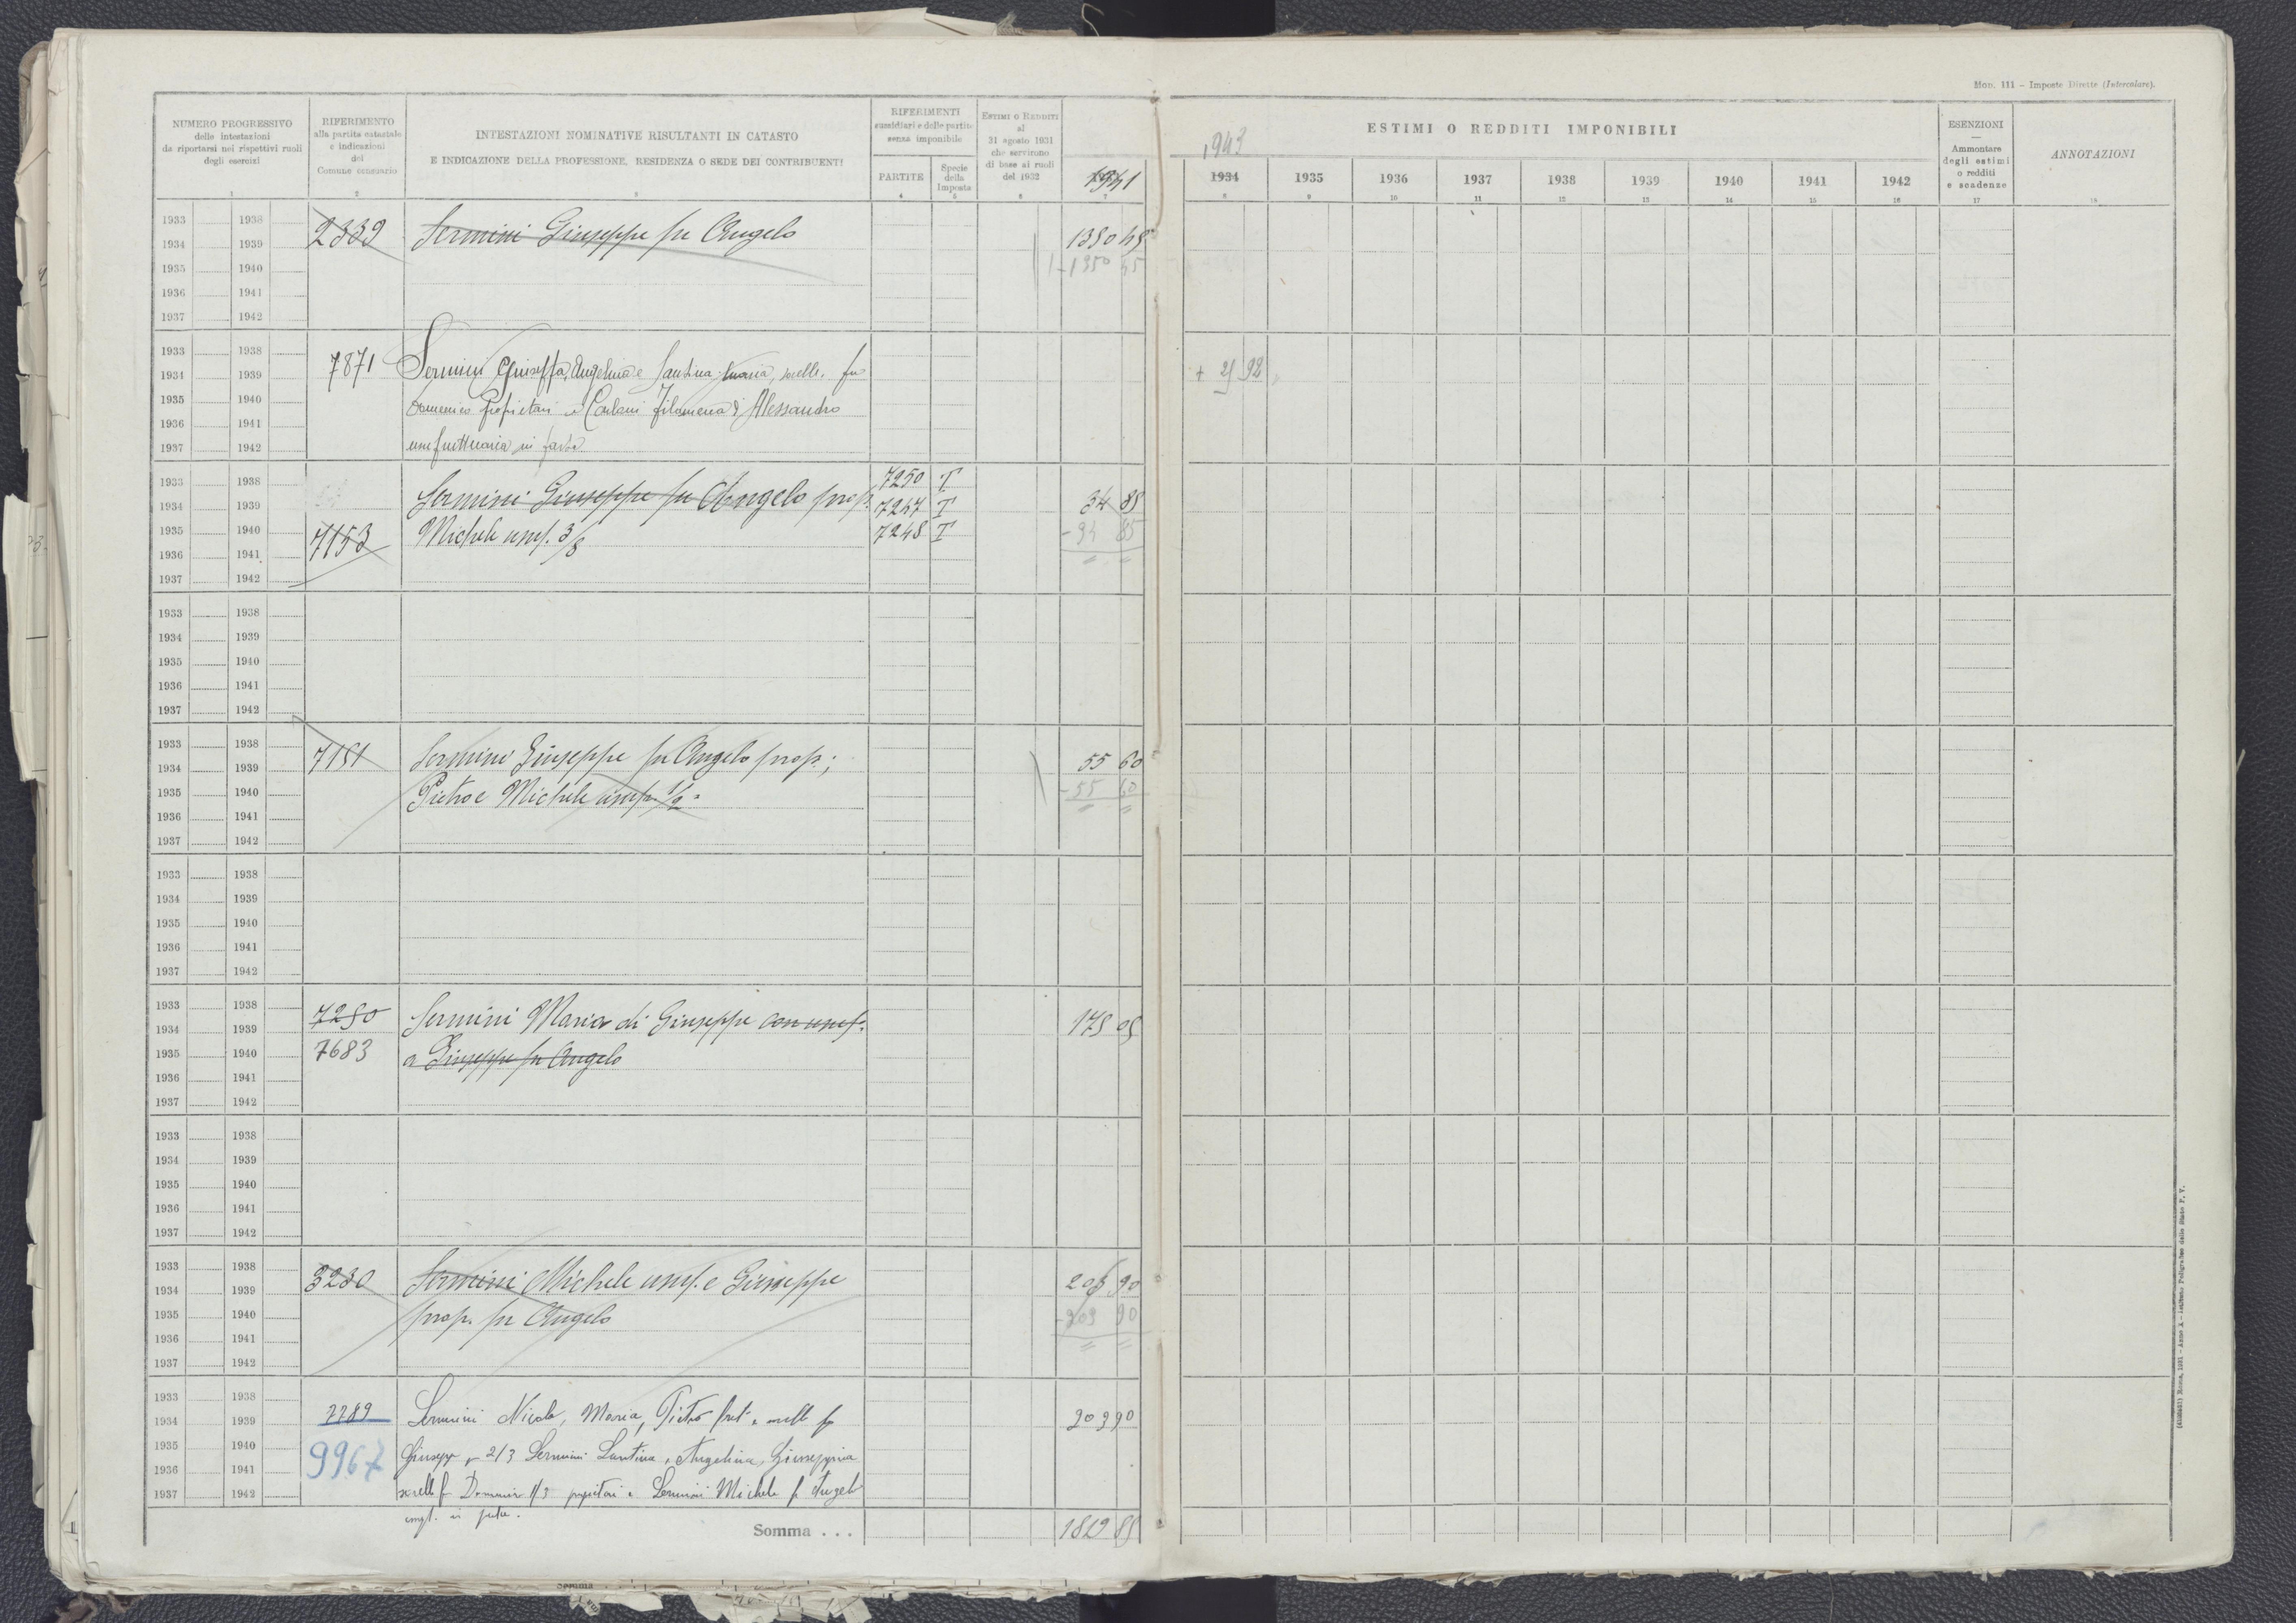 Mod. 111 – Imposte Dirette (Intercalare).
NUMERO PROGRESSIVO
delle intestazioni
da riportarsi nei rispettivi ruoli
degli esercizi
1
RIFERIMENTO
alla partita catastale
e indicazioni
del
Comune censuario
2
INTESTAZIONI NOMINATIVE RISULTANTI IN CATASTO
E INDICAZIONE DELLA PROFESSIONE, RESIDENZA O SEDE DEI CONTRIBUENTI
3
RIFERIMENTI
sussidiari e delle partite
senza imponibile
PARTITE
4
Specie
della
Imposta
5
ESTIMI O REDDITI
al
31 agosto 1931
che servirono
di base ai ruoli
del 1932
6
1941
7
ESTIMI O REDDITI IMPONIBILI
1943
1934 1935 1936 1937 1938 1939 1940 1941 1942
8 9 10 11 12 13 14 15 16
ESENZIONI
—
Ammontare
degli estimi
o redditi
e scadenze
17
ANNOTAZIONI
18
1933 1938
1934 1939 2339 Sermini Giuseppe fu Angelo 1350 45
1935 1940 -1350 45
1936 1941
1937 1942
1933 1938
1934 1939 7871 Sermini Giuseppa, Angelina e Santina, sorelle, fu
1935 1940 Domenico Proprietari e Carlani Filomena di Alessandro
1936 1941
1937 1942 usufruttuaria in parte
+ 2 92
1933 1938 7250 T
1934 1939 Sermini Giuseppe fu Angelo prop. 7247 T 34 85
1935 1940 7153 Michele usuf. 3/8 7248 T -34 85
1936 1941
1937 1942
1933 1938
1934 1939
1935 1940
1936 1941
1937 1942
1933 1938
1934 1939 7151 Sermini Giuseppe fu Angelo prop.; 55 60
1935 1940 Pietro e Michele usuf. 1/2 -55 60
1936 1941
1937 1942
1933 1938
1934 1939
1935 1940
1936 1941
1937 1942
1933 1938 7250
1934 1939 Sermini Maria di Giuseppe con usuf. 175 05
1935 1940 7683 a Giuseppe fu Angelo
1936 1941
1937 1942
1933 1938
1934 1939
1935 1940
1936 1941
1937 1942
1933 1938
1934 1939 3230 Sermini Michele usuf. e Giuseppe 203 90
1935 1940 prop. fu Angelo -203 90
1936 1941
1937 1942
1933 1938
1934 1939 7789 Sermini Nicola, Maria, Pietro frat. e sorelle fu 203 90
1935 1940 9967 Giuseppe 2/3 Sermini Santina, Angelina, Giuseppina
1936 1941
1937 1942 sorelle fu Domenico 1/3 proprietari e Sermini Michele fu Angelo
in parte.
Somma . . . 1819 85